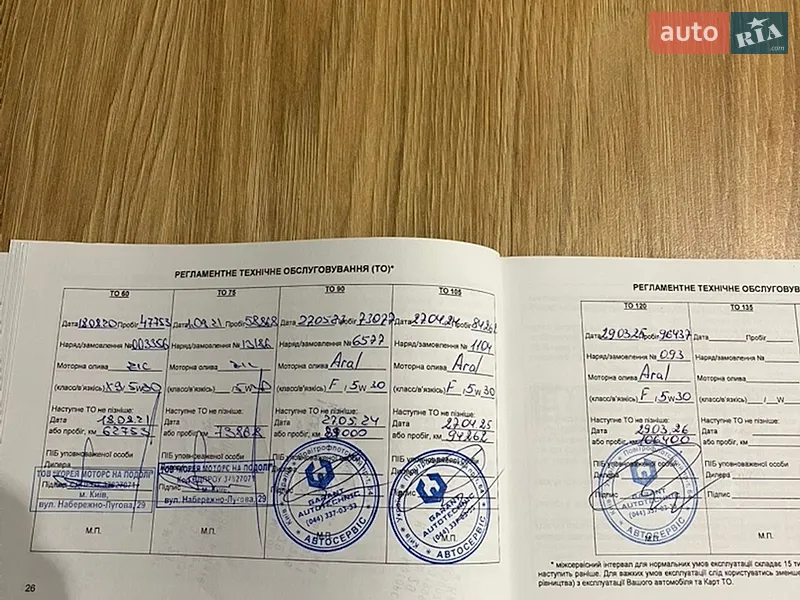 auto RIA.com
РЕГЛАМЕНТНЕ ТЕХНІЧНЕ ОБСЛУГОВУВАННЯ (ТО)*
ТО 60
Дата 180820 Пробіг 47753
Наряд/замовлення № 003356
Моторна олива ZIC
(класс/в'язкість) X9, 5w30
Наступне ТО не пізніше:
Дата 18.08.21
або пробіг, км 62753
ПІБ уповноваженої особи
Дилера
ТОВ "КОРЕЯ МОТОРС НА ПОДОЛІ"
Підпис
м. Київ,
вул. Набережно-Лугова, 29
М.П.
ТО 75
Дата Пробіг 58868
Наряд/замовлення №
Моторна олива ZIC
(класс/в'язкість)
Наступне ТО не пізніше:
Дата
або пробіг, км 73868
ПІБ уповноваженої особи
ТОВ "КОРЕЯ МОТОРС НА ПОДОЛІ"
Підпис
м. Київ,
вул. Набережно-Лугова, 29
М.П.
ТО 90
Дата Пробіг
Наряд/замовлення № 6577
Моторна олива Aral
(класс/в'язкість) F, 5w30
Наступне ТО не пізніше:
Дата 27.05.24
або пробіг, км
ПІБ уповноваженої особи
Дилера
Підпис
GARANT
AUTOTECHNIC
(044) 337-03-33
АВТОСЕРВІС
ТО 105
Дата 270424 Пробіг
Наряд/замовлення № 1104
Моторна олива Aral
(класс/в'язкість) F, 5w30
Наступне ТО не пізніше:
Дата 270425
або пробіг, км
ПІБ уповноваженої особи
Дилера
Підпис
GARANT
AUTOTECHNIC
АВТОСЕРВІС
26
РЕГЛАМЕНТНЕ ТЕХНІЧНЕ ОБСЛУГОВУВ
ТО 120
Дата 290325 Пробіг 96437
Наряд/замовлення № 093
Моторна олива Aral
(класс/в'язкість) F, 5w30
Наступне ТО не пізніше:
Дата 29.03.26
або пробіг, км 106400
ПІБ уповноваженої особи
Дилера
Підпис
GARANT
AUTOTECHNIC
АВТОСЕРВІС
ТО 135
Дата Пробіг
Наряд/замовлення №
Моторна олива
(класс/в'язкість) / W
Наступне ТО не пізніше:
Дата
або пробіг, км
ПІБ уповноваженої особи
Дилера
Підпис
М.П.
* міжсервісний інтервал для нормальних умов експлуатації складає 15 ти
наступить раніше. Для важких умов експлуатації слід користуватись зменше
рівництва) з експлуатації Вашого автомобіля та Карт ТО.